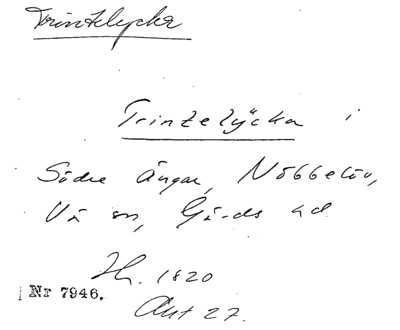 Trintelycka
Trintelyckan i
Södra Ängar, Nöbbelöv,
Vä sn, Gärds hd
Lh. 1820
Nr 7946.
Akt 27.